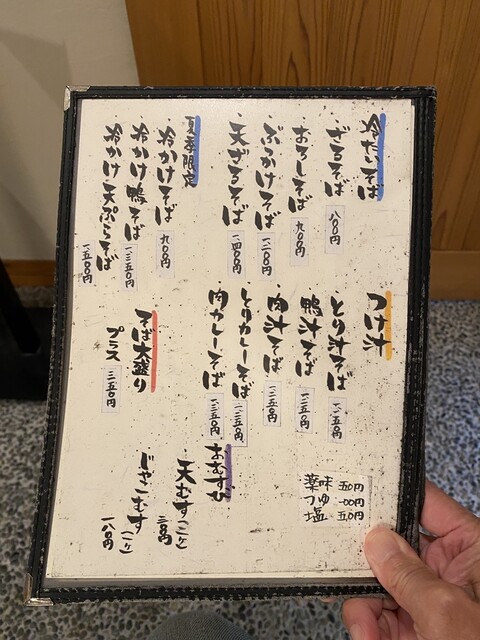 冷たいそば
・ざるそば 八〇〇円
・おろしそば 九〇〇円
・ぶっかけそば 一、一〇〇円
・天ざるそば 一、四〇〇円
夏季限定
・冷かけそば 九〇〇円
・冷かけ鴨そば 一、三五〇円
・冷かけ天ぷらそば 一、五〇〇円
つけ汁
・とり汁そば 一、二五〇円
・鴨汁そば 一、二五〇円
・肉汁そば 一、二五〇円
・とりカレーそば 一、三五〇円
・肉カレーそば 一、三五〇円
そば大盛り
プラス 三五〇円
おむすび
・天むす(一ケ)
・じゃこむす(一ケ) 一八〇円
薬味 五〇円
つゆ 一〇〇円
塩 五〇円